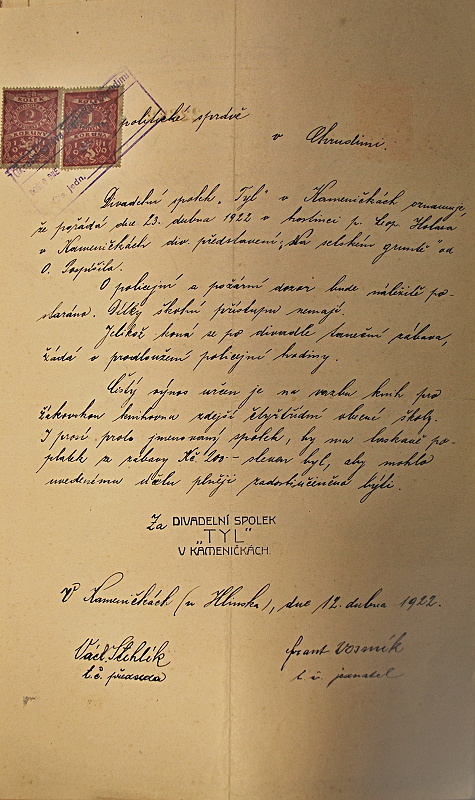 KOLEK KOLEK
2 1
KORUNY KORUNA
politické správě
v Chrudimi.
Divadelní spolek „Tyl" v Kameničkách oznamuje
že pořádá dne 23. dubna 1922 v hostinci p. Leop. Holasa
v Kameničkách div. představení „Na selském gruntě" od
O. Pospíšila.
O policejní a požární dozor bude náležitě po-
staráno. Dítky školní přístupu nemají.
Jelikož koná se po divadle taneční zábava,
žádá o prodloužení policejní hodiny.
Čistý výnos určen je na vazbu knih pro
žákovskou knihovnu zdejší čtyřtřídní obecné školy.
I prosí proto jmenovaný spolek, by mu laskavě po-
platek ze zábavy Kč 20·– sleven byl, aby mohlo
uvedenému účelu plněji zadostiučiněno býti.
Za DIVADELNÍ SPOLEK
„TYL"
V KAMENIČKÁCH.
V Kameničkách (u Hlinska), dne 12. dubna 1922.
Václ. Stehlík
t. č. předseda
Frant Vosmík
t. č. jednatel